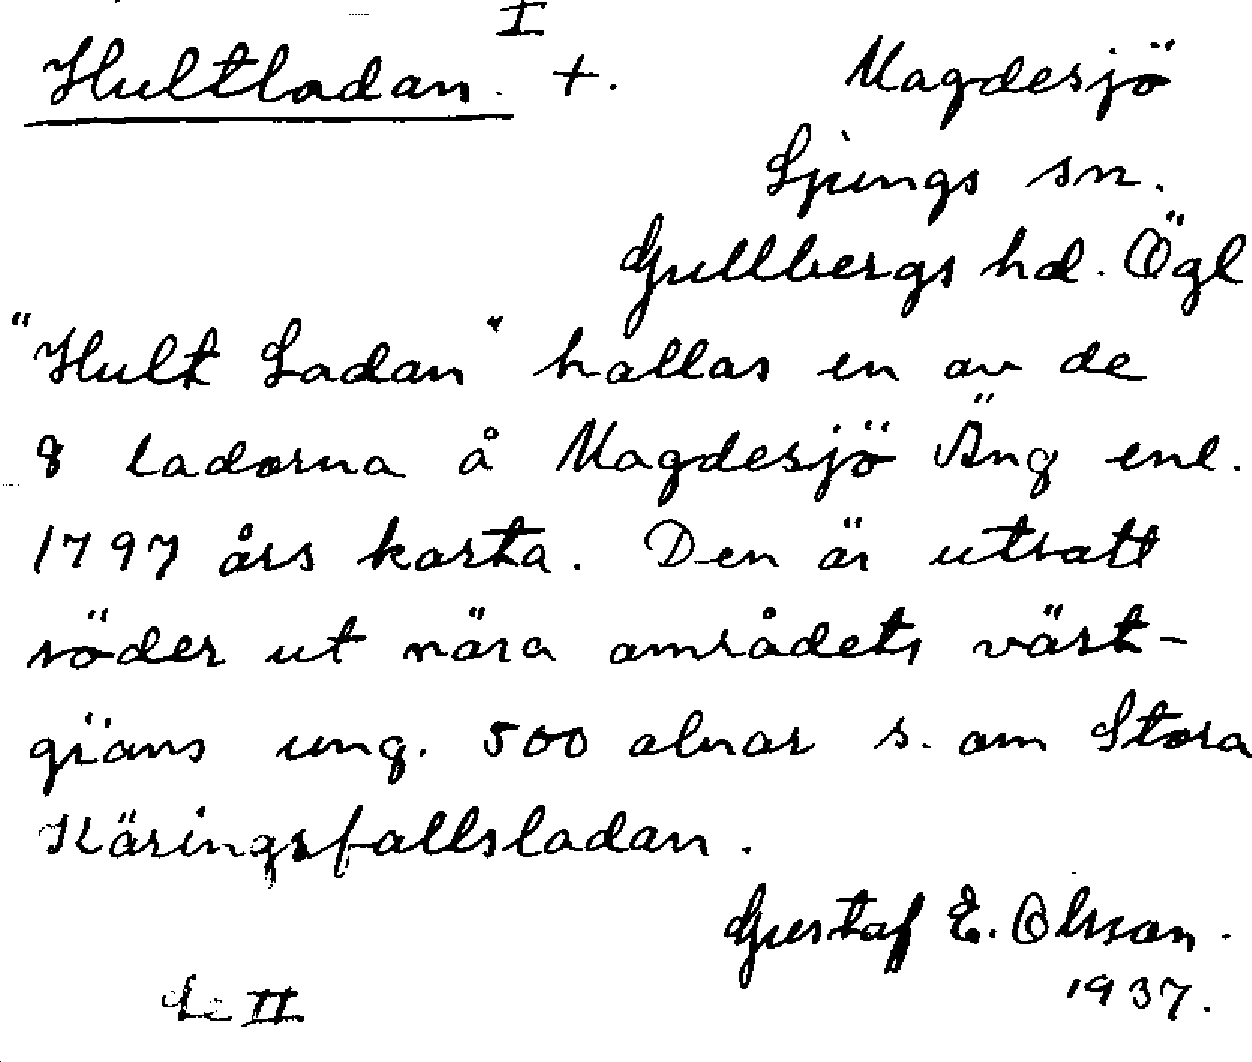 I
Hultladan. +. Magdesjö
Ljungs sn.
Gullbergs hd. Ögl
"Hult Ladan" kallas en av de
8 ladorna å Magdesjö Äng enl.
1797 års karta. Den är utsatt
söder ut nära områdets väst-
gräns ung. 500 alnar s. om Stora
Käringsfallsladan.
Gustaf E. Olsson.
1937.
II